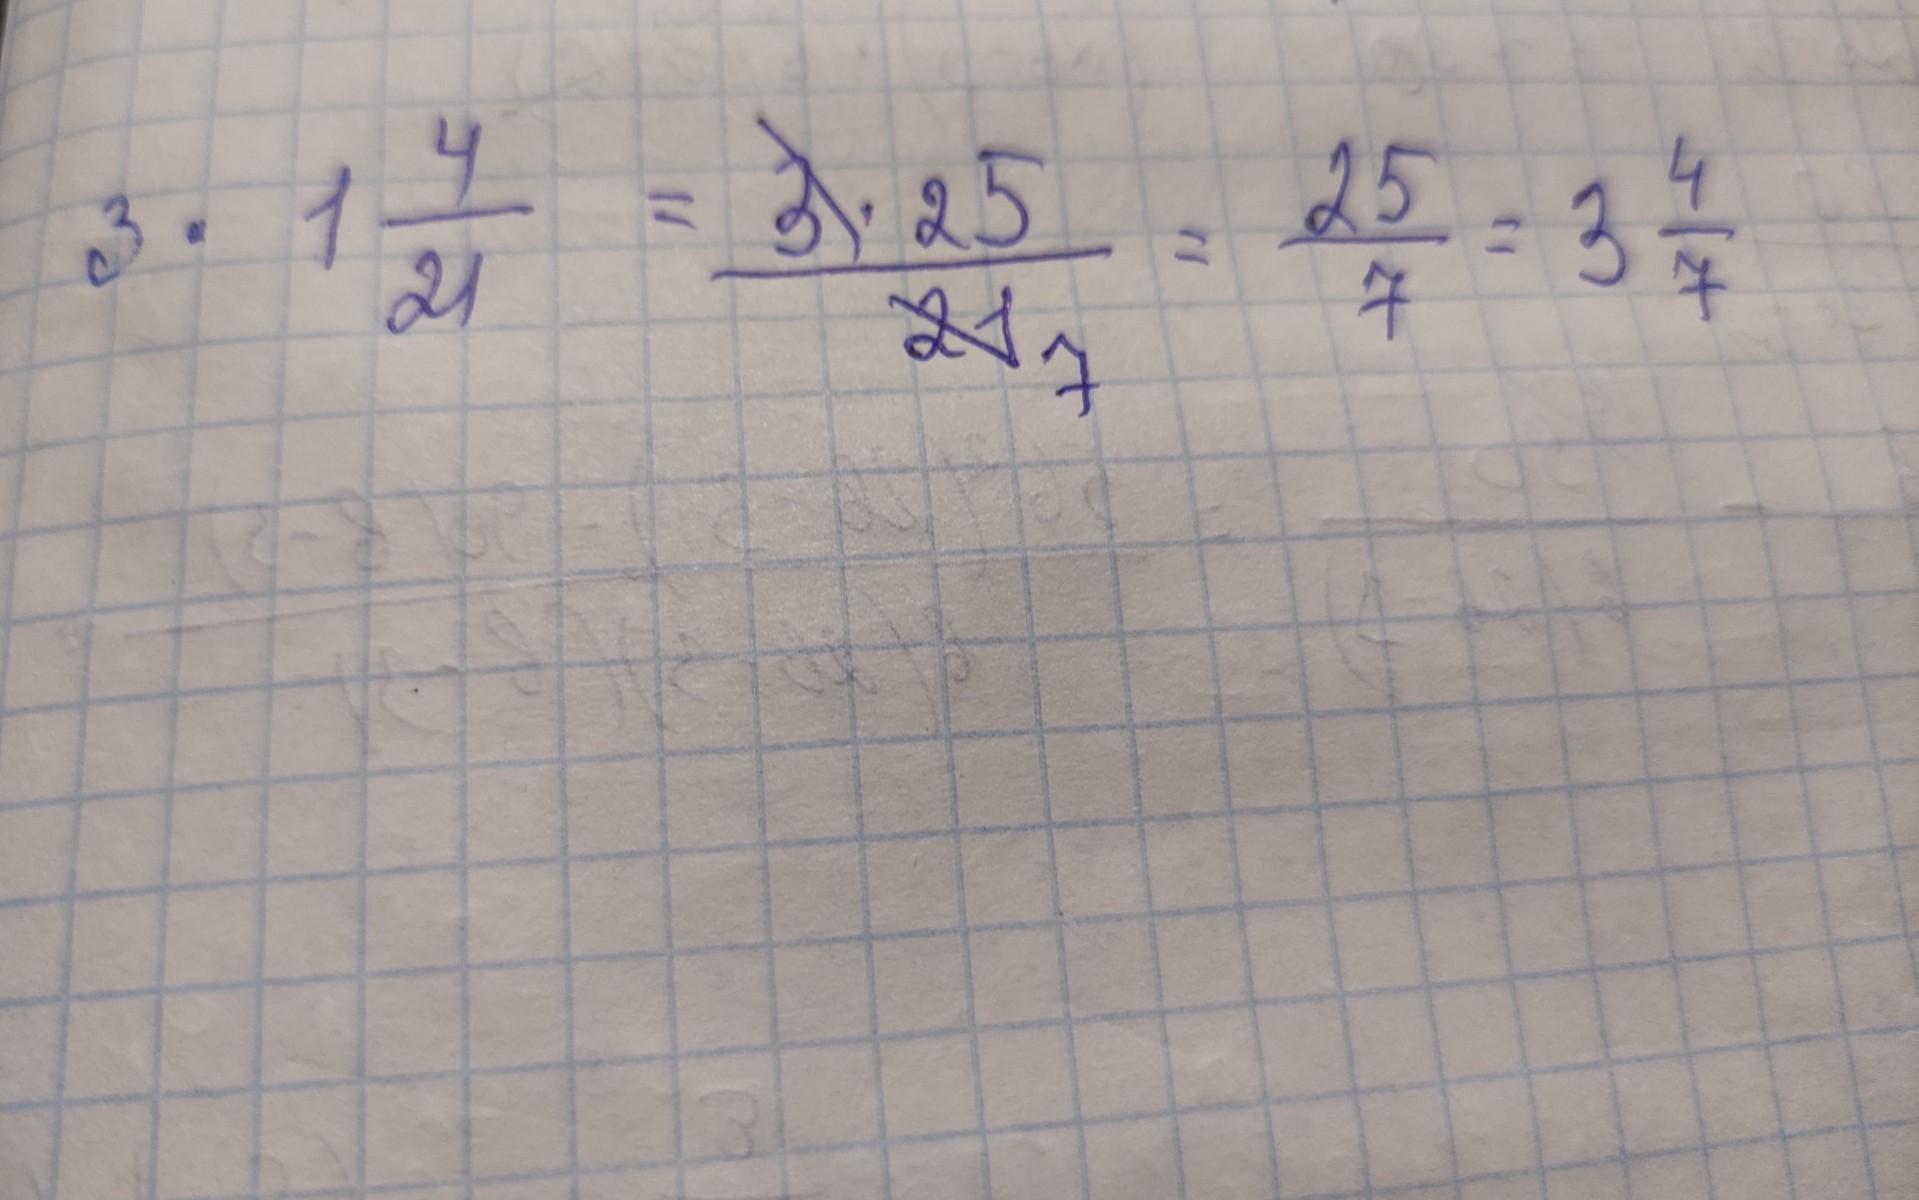 3 · 1 4/21 = 3 · 25/21 7 = 25/7 = 3 4/7